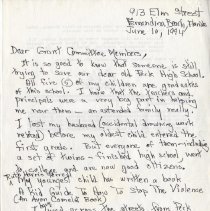 913 Elm Street
Fernandina Beach, Florida
June 10, 1996
Dear Grant Committee Members,
It is so good to know that someone is still
trying to save our dear old Peck High School.
All five of my children are graduates
of this school. I know that the teachers and
principals were a very big part in helping
me rear them — an extended family really.
I lost my husband (accidental drowning, work
related) before my oldest child entered the
first grade. But everyone of them including
a set of twins — finished high school went
to college and are now good citizens.
My youngest child has written a book
A Kid's Guide to How to Stop The Violence
(An Avon Camelot Book)
I lived across the streets from Peck